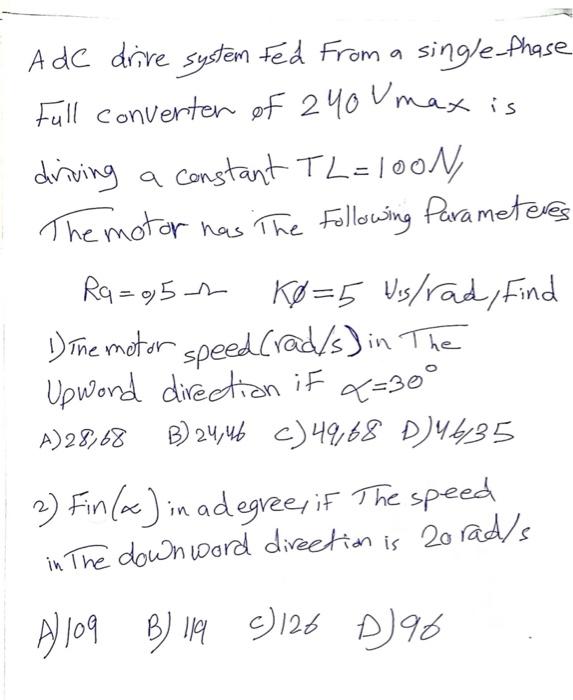 A dC drive system fed from a single-Phase
Full converter of 240 Vmax is
driving a constant TL=100N,
The motor has The Following Parameteres
Ra=0,5 Ω KØ=5 V.s/rad, Find
1) The motor speed (rad/s) in The
Upword direction if α=30°
A) 28,68 B) 24,46 C) 49,68 D) 46,35
2) Fin (α) in a degree, if The speed
in The downword direction is 20 rad/s
A) 109 B) 119 C) 126 D) 96